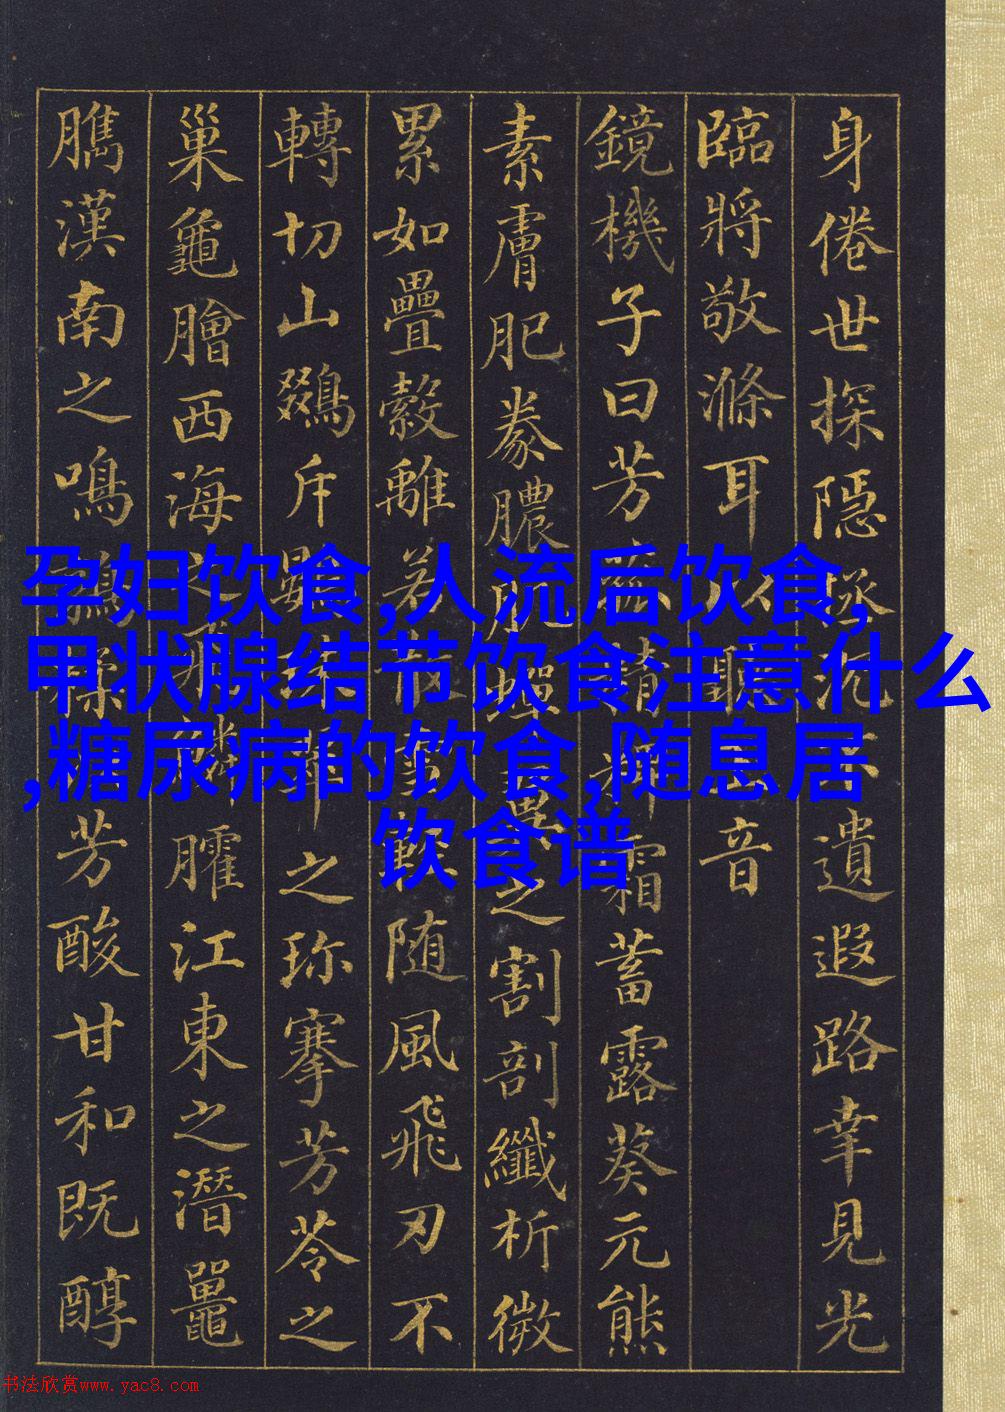 身倦世探隱拯沉不遺遐路幸見光
臨將敬滌耳聽音
鏡機子曰芳菰精粺霜蓄露葵元熊
素膚肥豢膿肌蟬翼之割剖纖析微
累如疊縠離若散雪輕随風飛刃不
轉切山鵽斥鷃珠翠之珍搴芳苓之
巢龜膾西海之飛鱗臛江東之潛鼉
臇漢南之鳴鶉糅芳酸甘和既醇
孕妇饮食,人流后饮食,
甲状腺结节饮食注意什么
,糖尿病的饮食,随息居
饮食谱
书法欣赏www.yac8.com